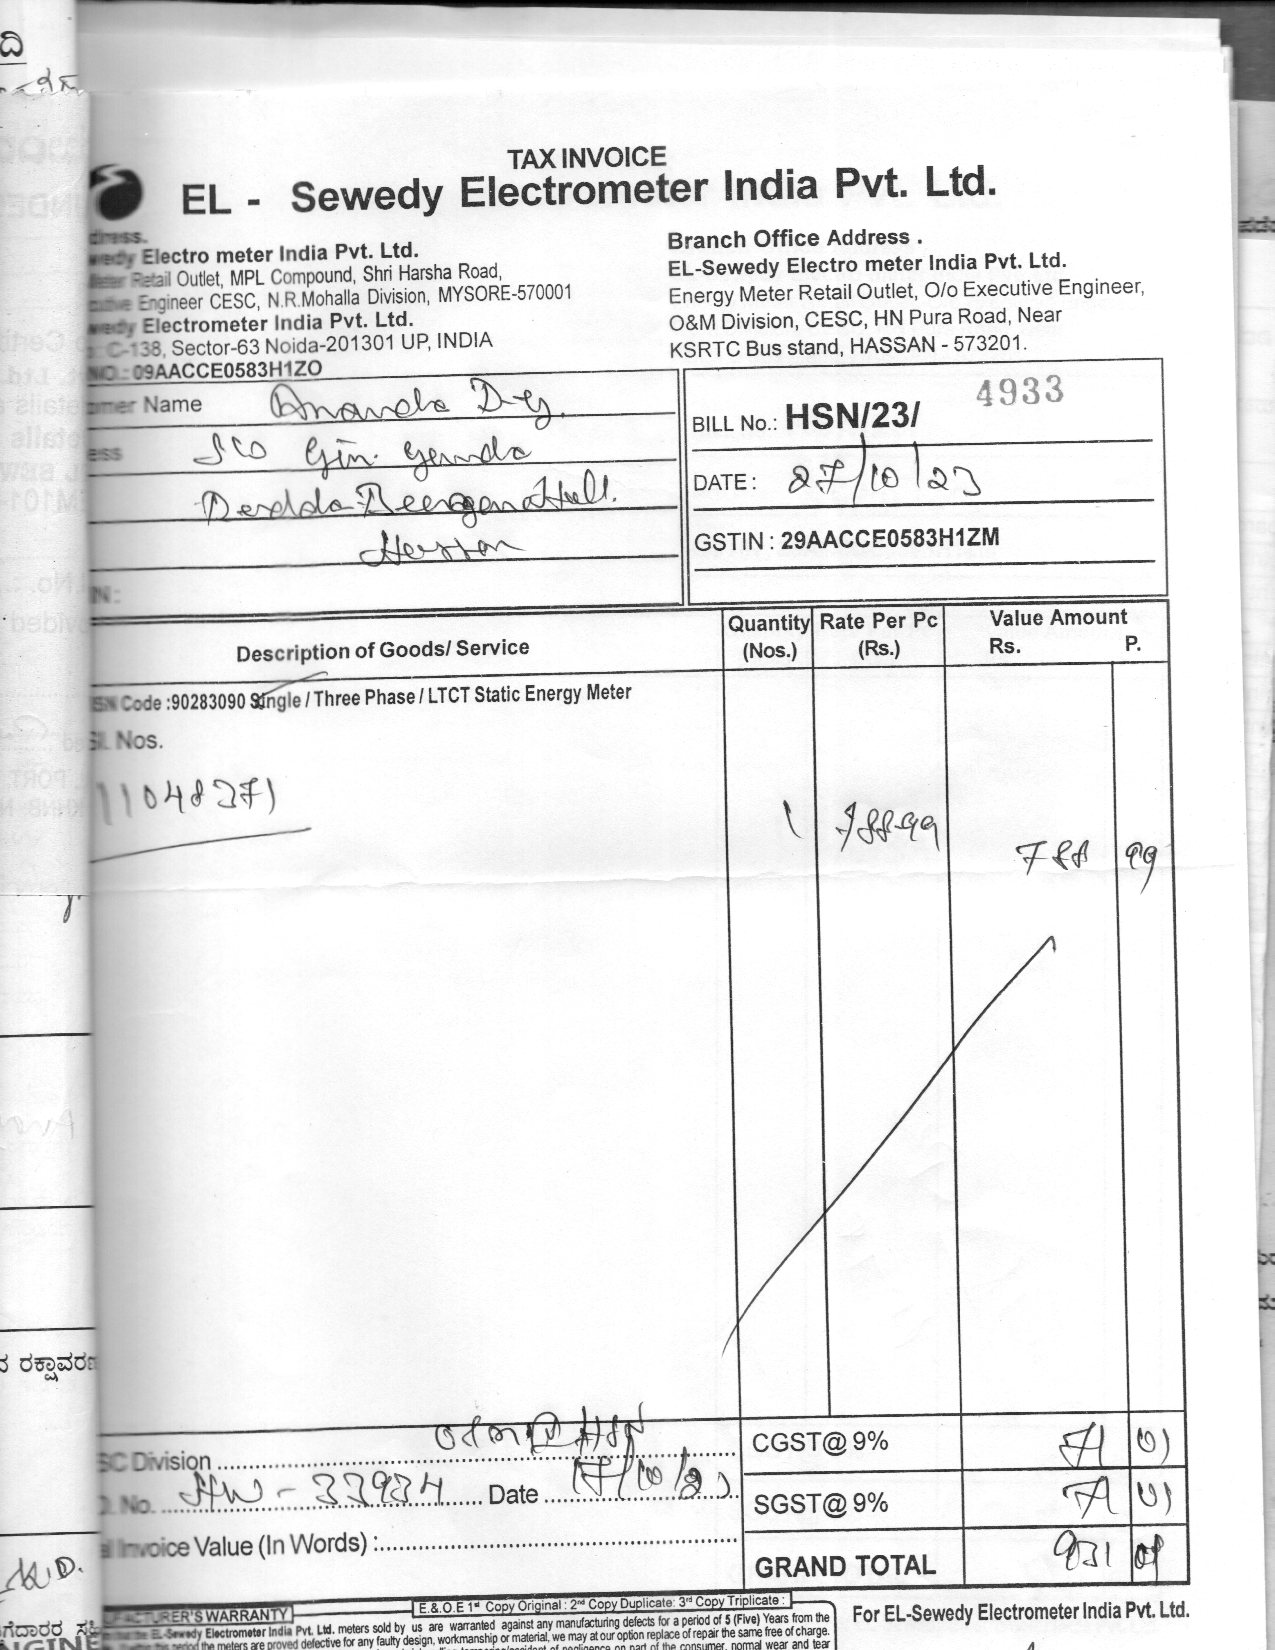 TAX INVOICE
EL - Sewedy Electrometer India Pvt. Ltd.
Electro meter India Pvt. Ltd.
Retail Outlet, MPL Compound, Shri Harsha Road,
Engineer CESC, N.R.Mohalla Division, MYSORE-570001
Electrometer India Pvt. Ltd.
C-138, Sector-63 Noida-201301 UP, INDIA
NO.: 09AACCE0583H1ZO
Branch Office Address .
EL-Sewedy Electro meter India Pvt. Ltd.
Energy Meter Retail Outlet, O/o Executive Engineer,
O&M Division, CESC, HN Pura Road, Near
KSRTC Bus stand, HASSAN - 573201.
Name Ananda
S/o
Hassan
BILL No.: HSN/23/ 4933
DATE : 27/10/23
GSTIN : 29AACCE0583H1ZM
Description of Goods/ Service
Quantity (Nos.)
Rate Per Pc (Rs.)
Value Amount
Rs. P.
Code :90283090 Single / Three Phase / LTCT Static Energy Meter
Sl. Nos.
11048271
1 788-99 788 99
Division
No. HW - 33934 Date 17/10/23
Invoice Value (In Words) :
CGST@ 9% 71 01
SGST@ 9% 71 01
GRAND TOTAL 931 01
E.& O.E 1st Copy Original : 2nd Copy Duplicate: 3rd Copy Triplicate :
For EL-Sewedy Electrometer India Pvt. Ltd.
WARRANTY
EL-Sewedy Electrometer India Pvt. Ltd. meters sold by us are warranted against any manufacturing defects for a period of 5 (Five) Years from the
the meters are proved defective for any faulty design, workmanship or material, we may at our option replace of repair the same free of charge.